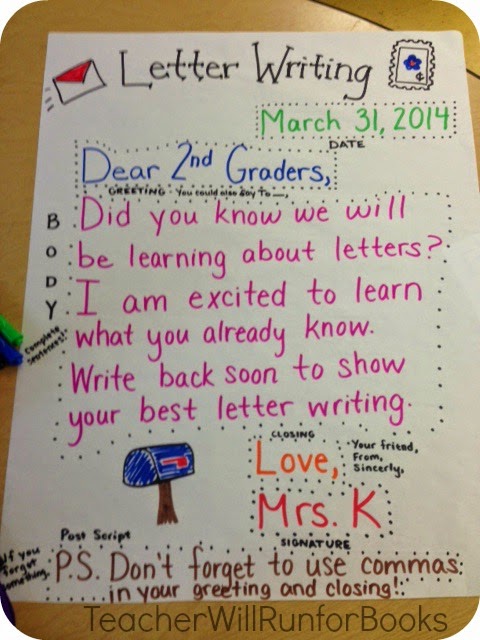 Letter Writing
March 31, 2014
DATE
Dear 2nd Graders,
GREETING - You could also say To —,
BODY
Did you know we will
be learning about letters?
I am excited to learn
what you already know.
Write back soon to show
your best letter writing.
Complete
Sentences!!
CLOSING
Love,
Your friend,
From,
Sincerely,
Mrs. K
SIGNATURE
Post Script
If you
forgot
something.
P.S. Don't forget to use commas
in your greeting and closing!
TeacherWillRunforBooks